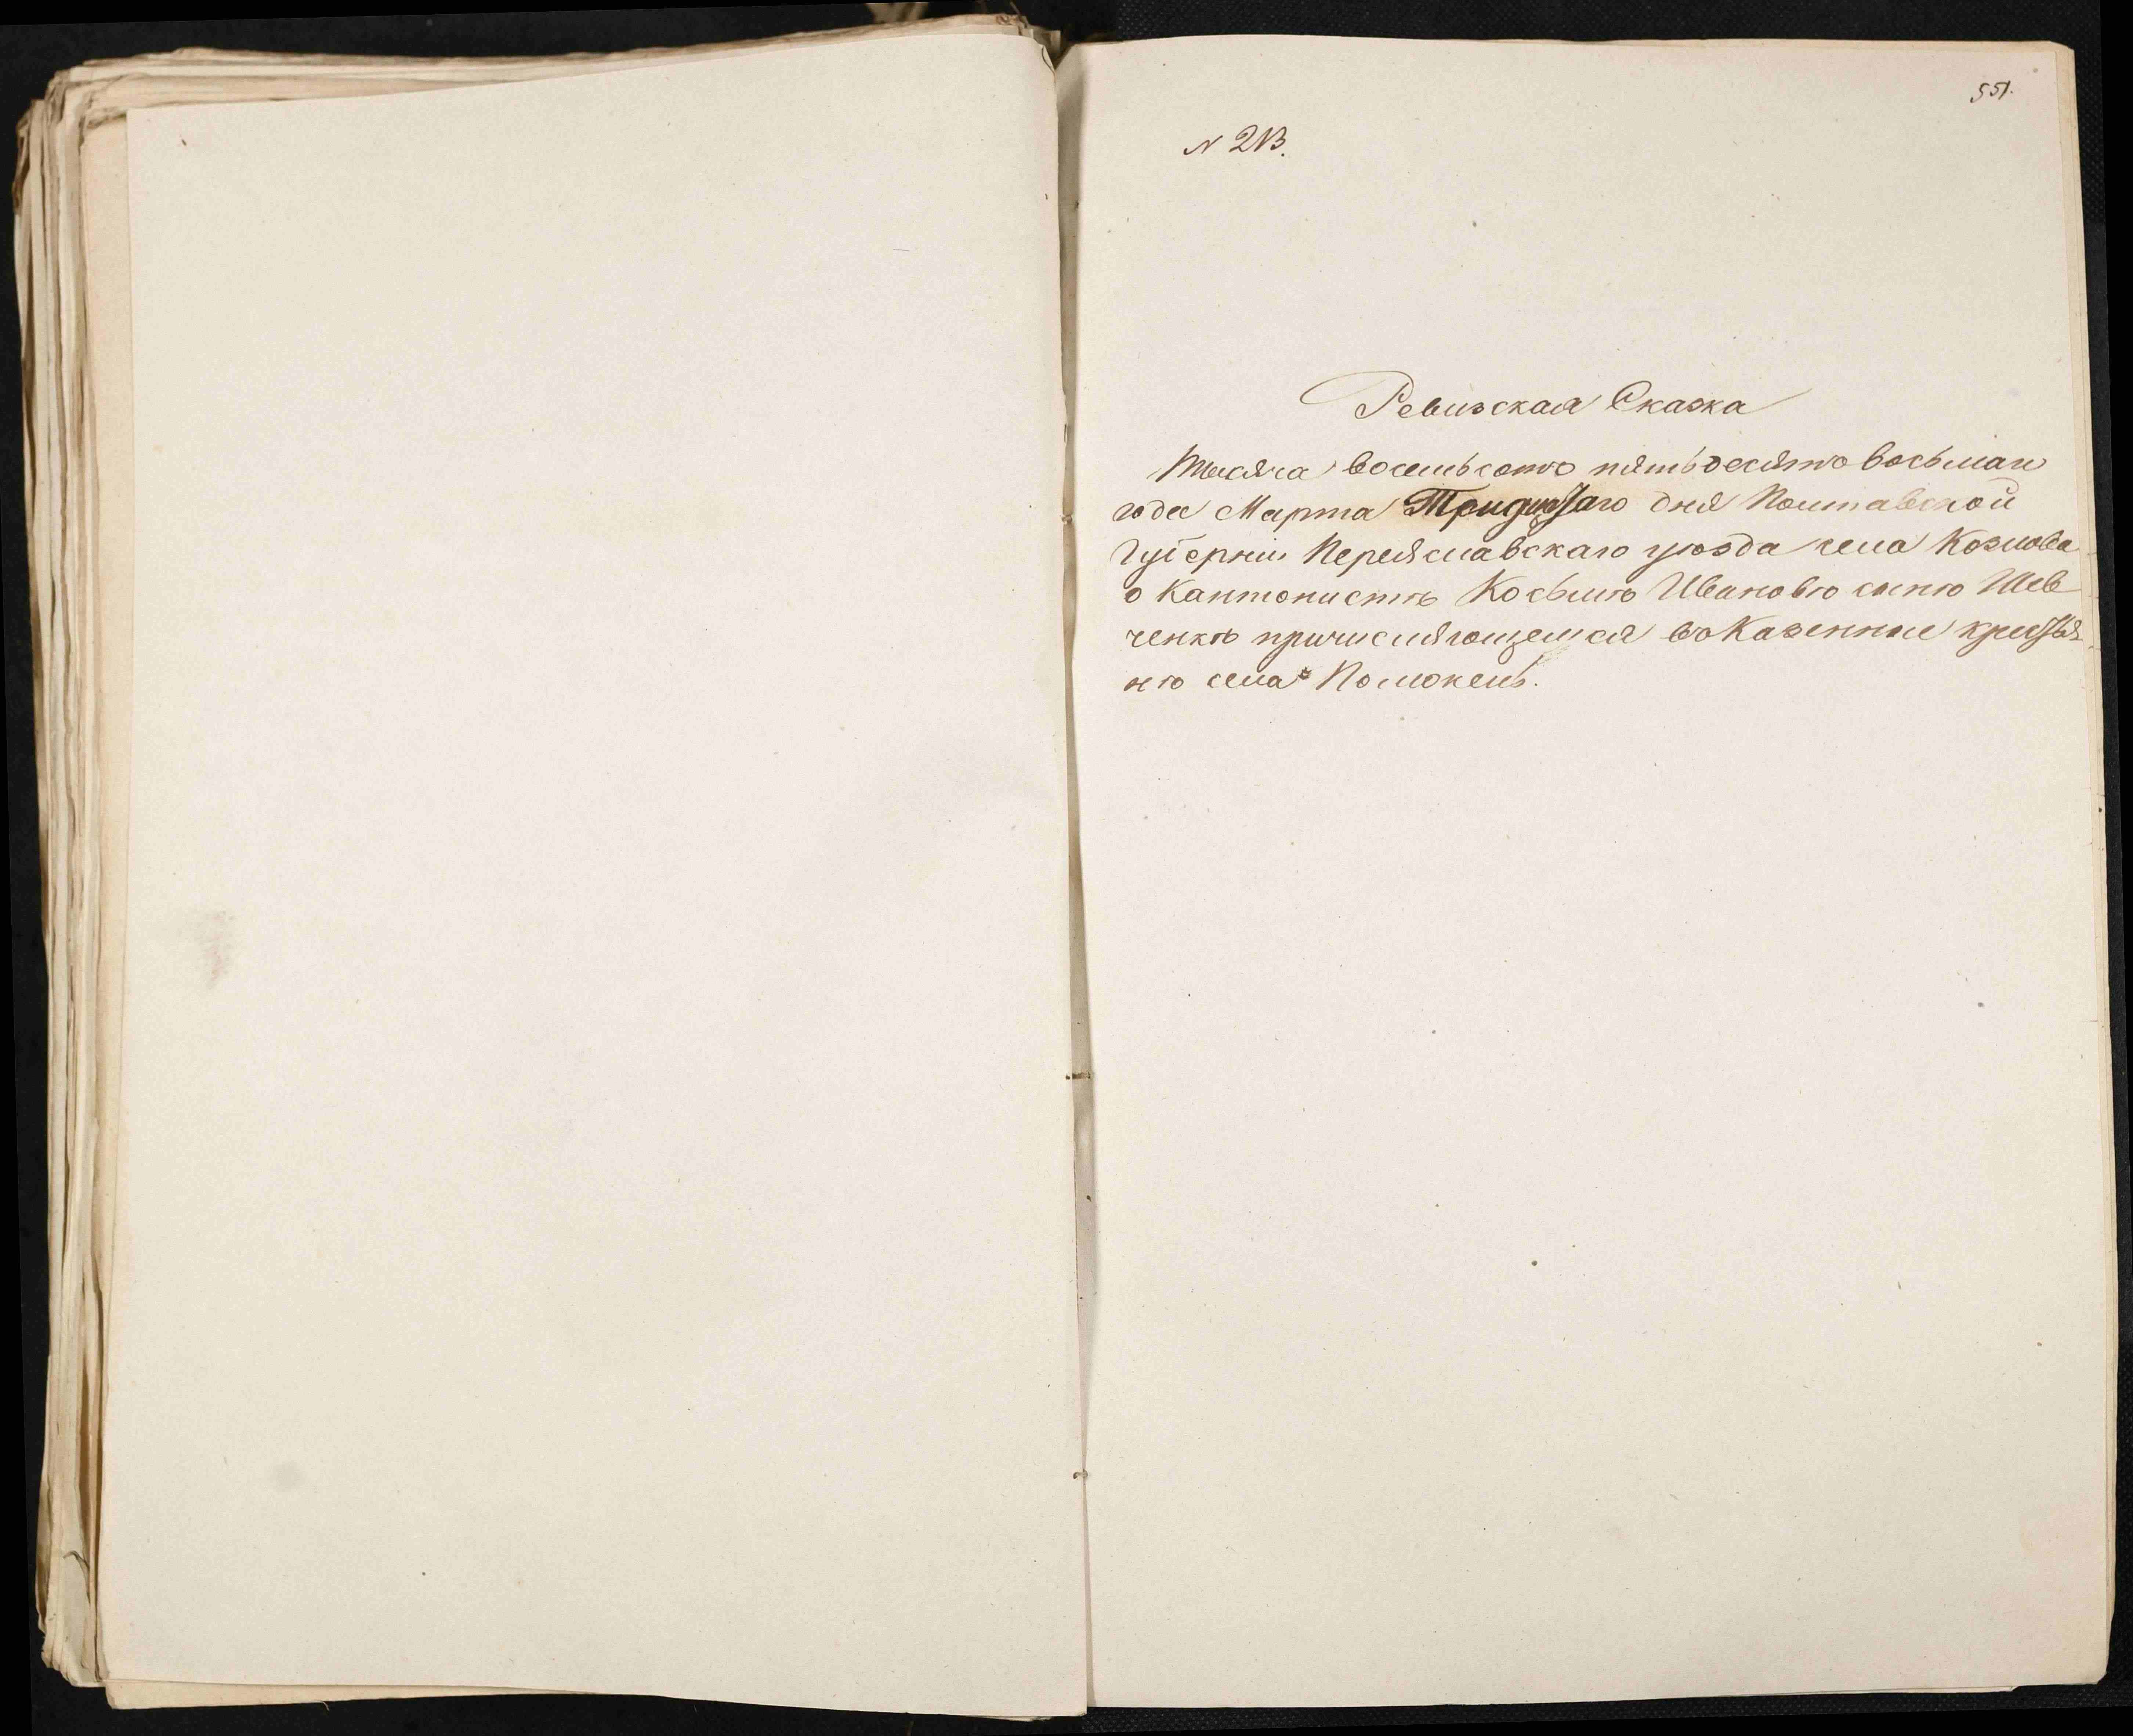 551.
N 213.
Ревизская Сказка
Тысяча восемьсотъ пятьдесятъ восьмаго
года Марта Тридцатаго дня Полтавской
Губерніи Переяславскаго уѣзда села Козлова
о Кантонистѣ Косьмѣ Ивановѣ сынѣ Шев
ченкѣ причисляющемся въ Казенные крестья
нѣ села Помоклеи.